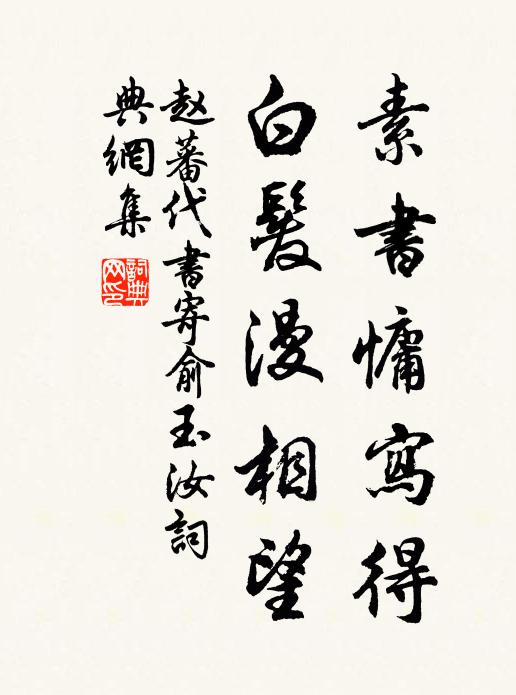 素書慵寫得
白髮漫相望
赵蕃代書寄俞玉汝詞
典網集
詞典
网印